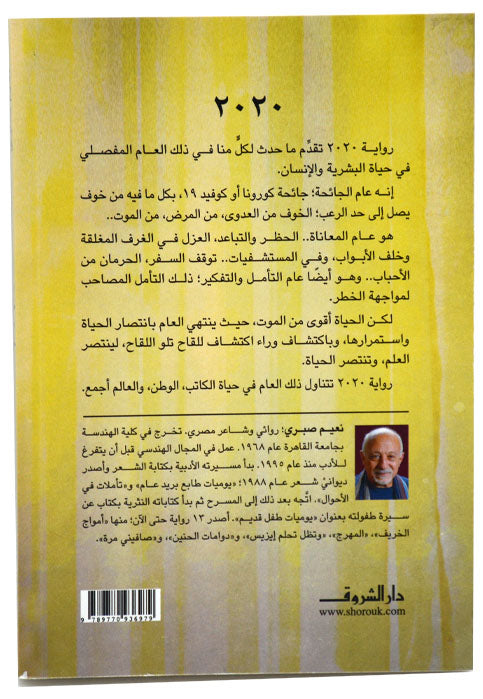 ٢٠٢٠
رواية ٢٠٢٠ تقدِّم ما حدث لكلٍّ منا في ذلك العام المفصلي
في حياة البشرية والإنسان.
إنه عام الجائحة؛ جائحة كورونا أو كوفيد ١٩، بكل ما فيه من خوف
يصل إلى حد الرعب؛ الخوف من العدوى، من المرض، من الموت..
هو عام المعاناة.. الحظر والتباعد، العزل في الغرف المغلقة
وخلف الأبواب، وفي المستشفيات.. توقف السفر، الحرمان من
الأحباب.. وهو أيضًا عام التأمل والتفكير؛ ذلك التأمل المصاحب
لمواجهة الخطر.
لكن الحياة أقوى من الموت، حيث ينتهي العام بانتصار الحياة
واستمرارها، وباكتشاف وراء اكتشاف للقاح تلو اللقاح، لينتصر
العلم، وتنتصر الحياة.
رواية ٢٠٢٠ تتناول ذلك العام في حياة الكاتب، الوطن، والعالم أجمع.
نعيم صبري؛ روائي وشاعر مصري. تخرج في كلية الهندسة
بجامعة القاهرة عام ١٩٦٨. عمل في المجال الهندسي قبل أن يتفرغ
للأدب منذ عام ١٩٩٥. بدأ مسيرته الأدبية بكتابة الشعر وأصدر
ديوانيْ شعر عام ١٩٨٨؛ «يوميات طابع بريد عام» و«تأملات في
الأحوال». اتَّجه بعد ذلك إلى المسرح ثم بدأ كتاباته النثرية بكتاب عن
سيرة طفولته بعنوان «يوميات طفل قديم». أصدر ١٣ رواية حتى الآن؛ منها «أمواج
الخريف»، «المهرج»، «وتظل تحلم إيزيس»، و«دوامات الحنين»، و«صافيني مرة».
دار الشروق
www.shorouk.com
9 789770 936979